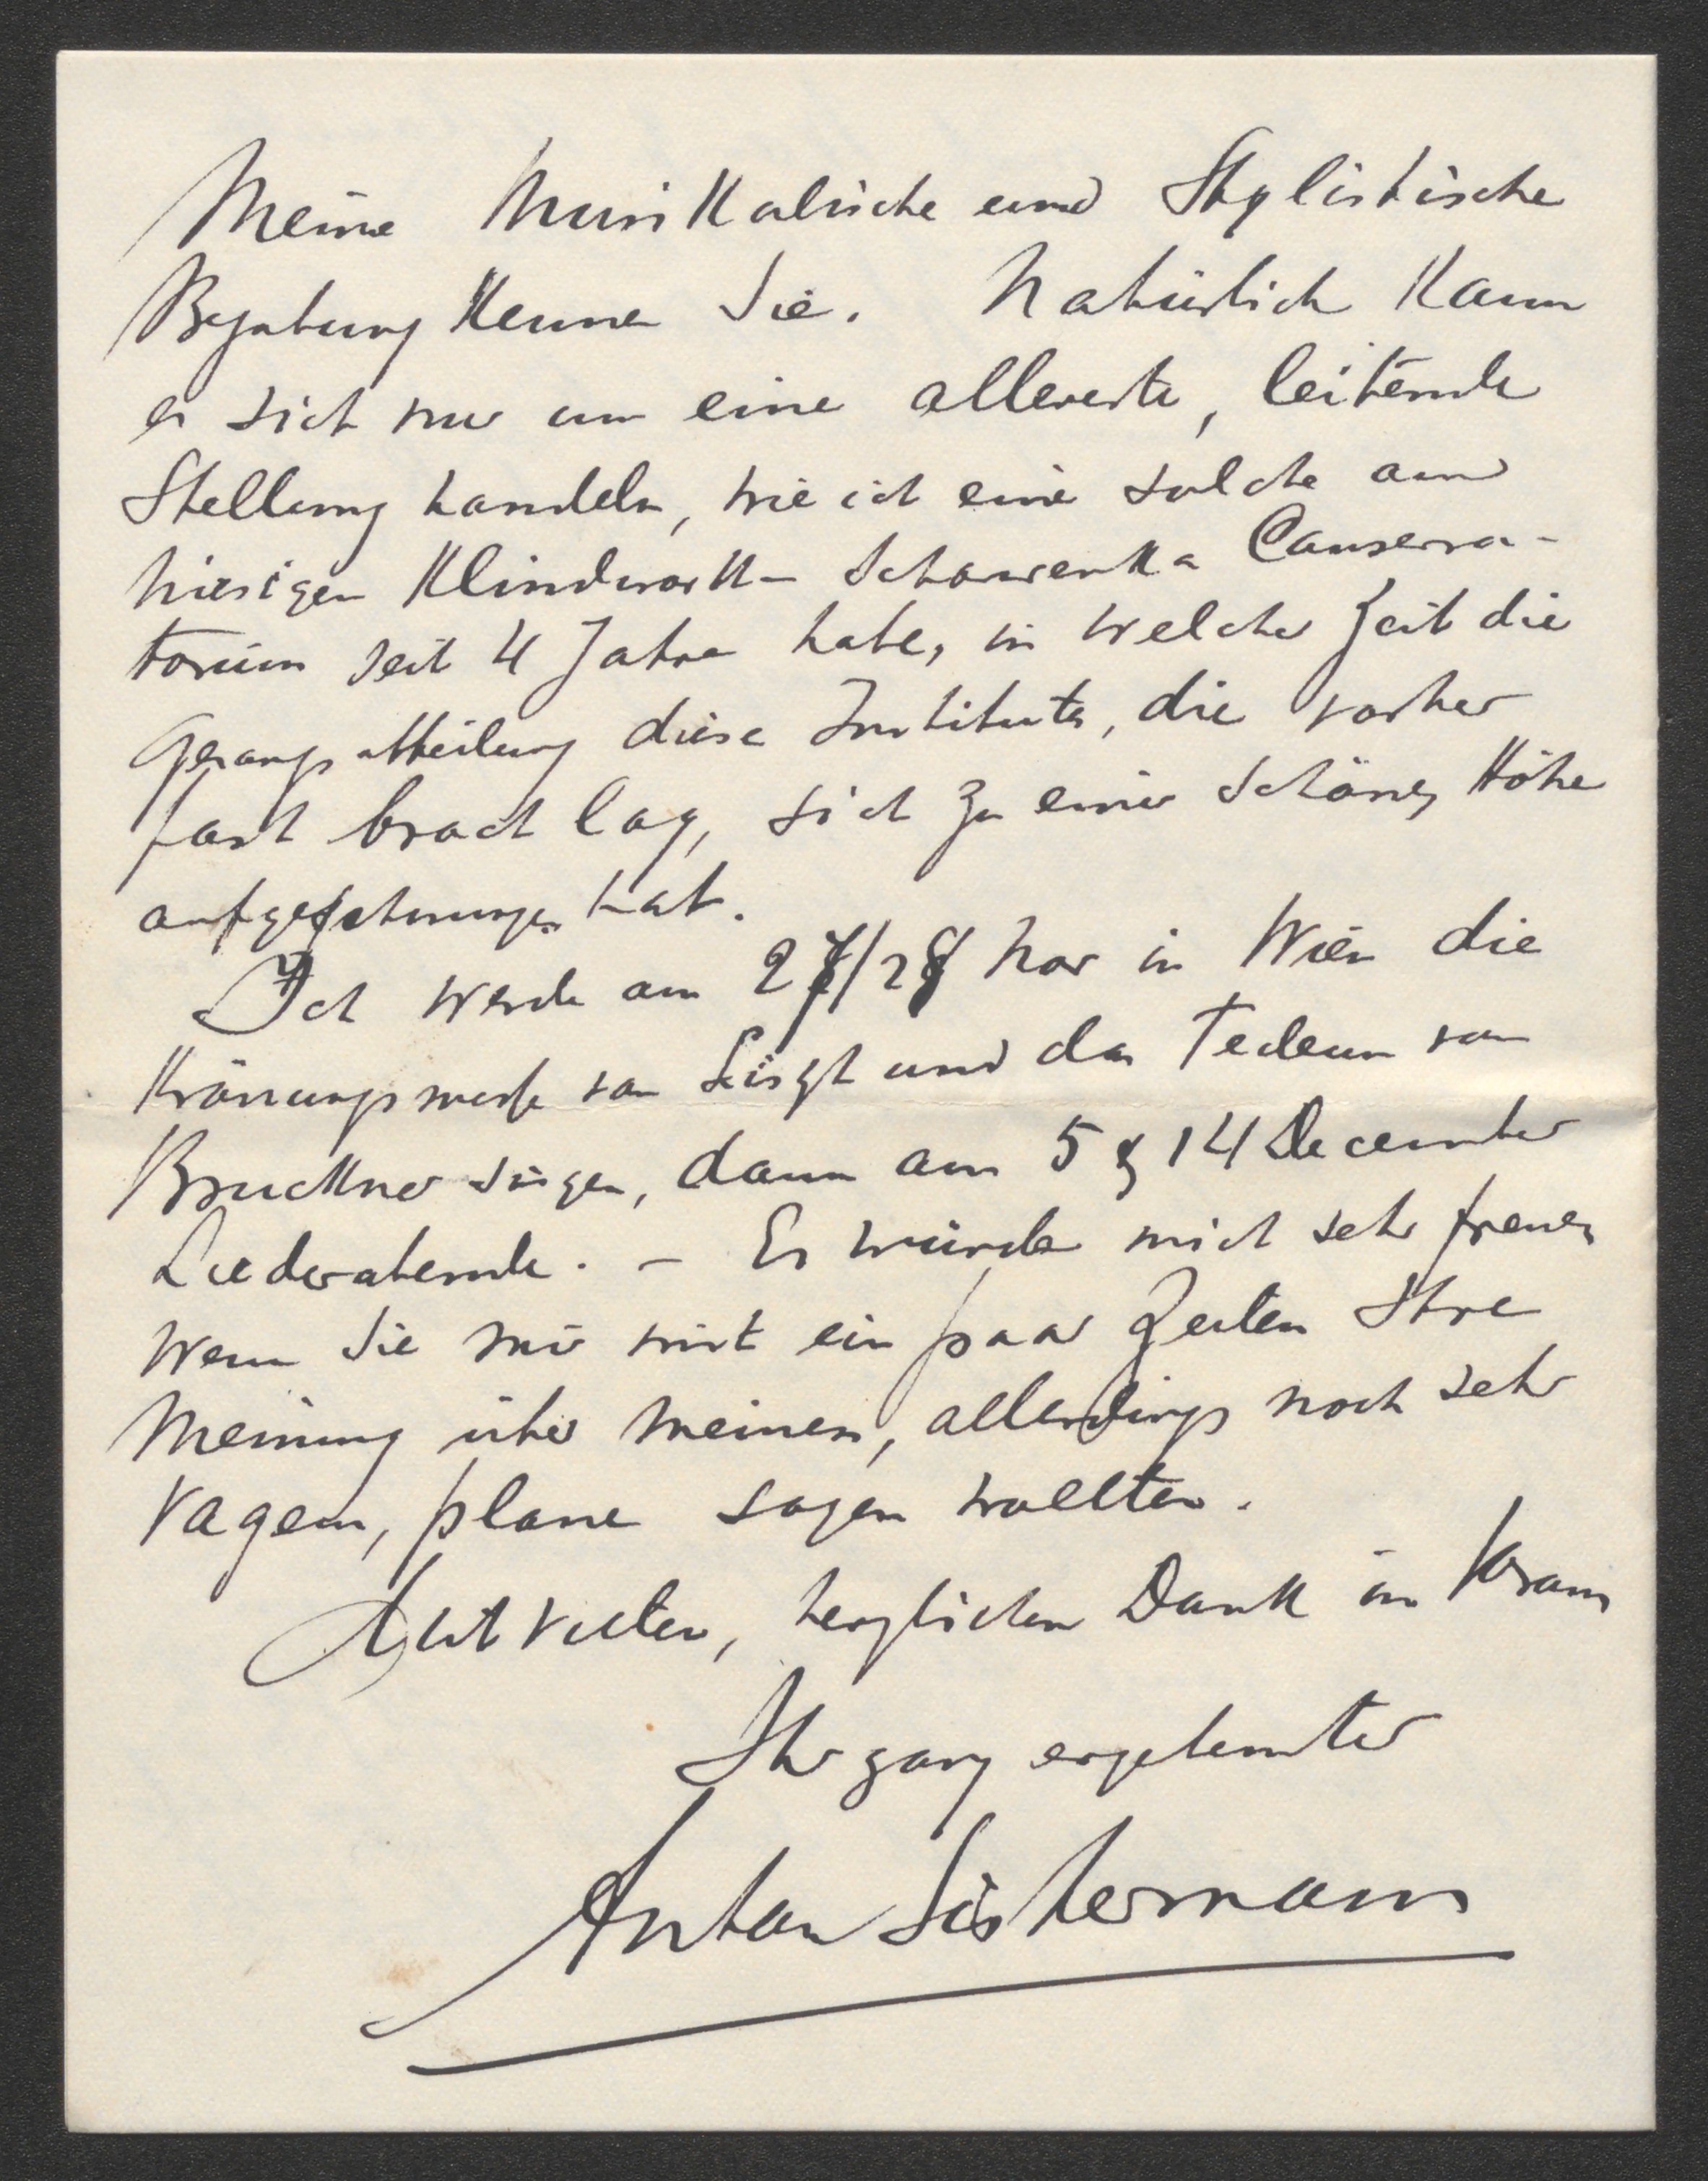 Meine Musikalische und Stylistische
Begabung kennen Sie. Natürlich kann
es sich nur um eine allererste, leitende
Stellung handeln, wie ich eine solche am
hiesigen Klindworth-Scharwenka Conserva-
torium seit 4 Jahren habe, in welcher Zeit die
Gesangsabtheilung dieses Instituts, die vorher
fast brach lag, sich zu einer schönen Höhe
aufgeschwungen hat.
Ich werde am 27/28 Nov in Wien die
Krönungsmesse von Liszt und das Tedeum von
Bruckner singen, dann am 5 & 14 December
Liederabende. – Es würde mich sehr freuen
wenn Sie mir mit ein paar Zeilen Ihre
Meinung über meinen, allerdings noch sehr
vagen, plane sagen wollten.
Mit vielem, herzlichen Dank im Voraus
Ihr ganz ergebenster
Anton Sistermans